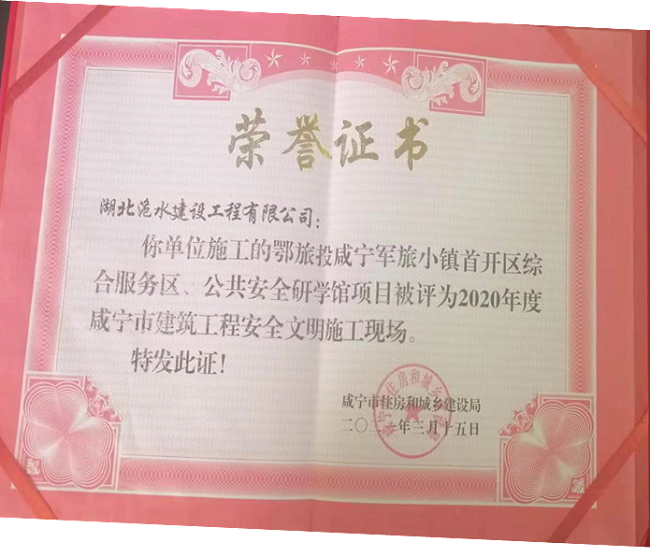 荣誉证书
湖北洈水建设工程有限公司：
你单位施工的鄂旅投咸宁军旅小镇首开区综
合服务区、公共安全研学馆项目被评为2020年度
咸宁市建筑工程安全文明施工现场。
特发此证！
咸宁市住房和城乡建设局
二〇二 年三月十五日